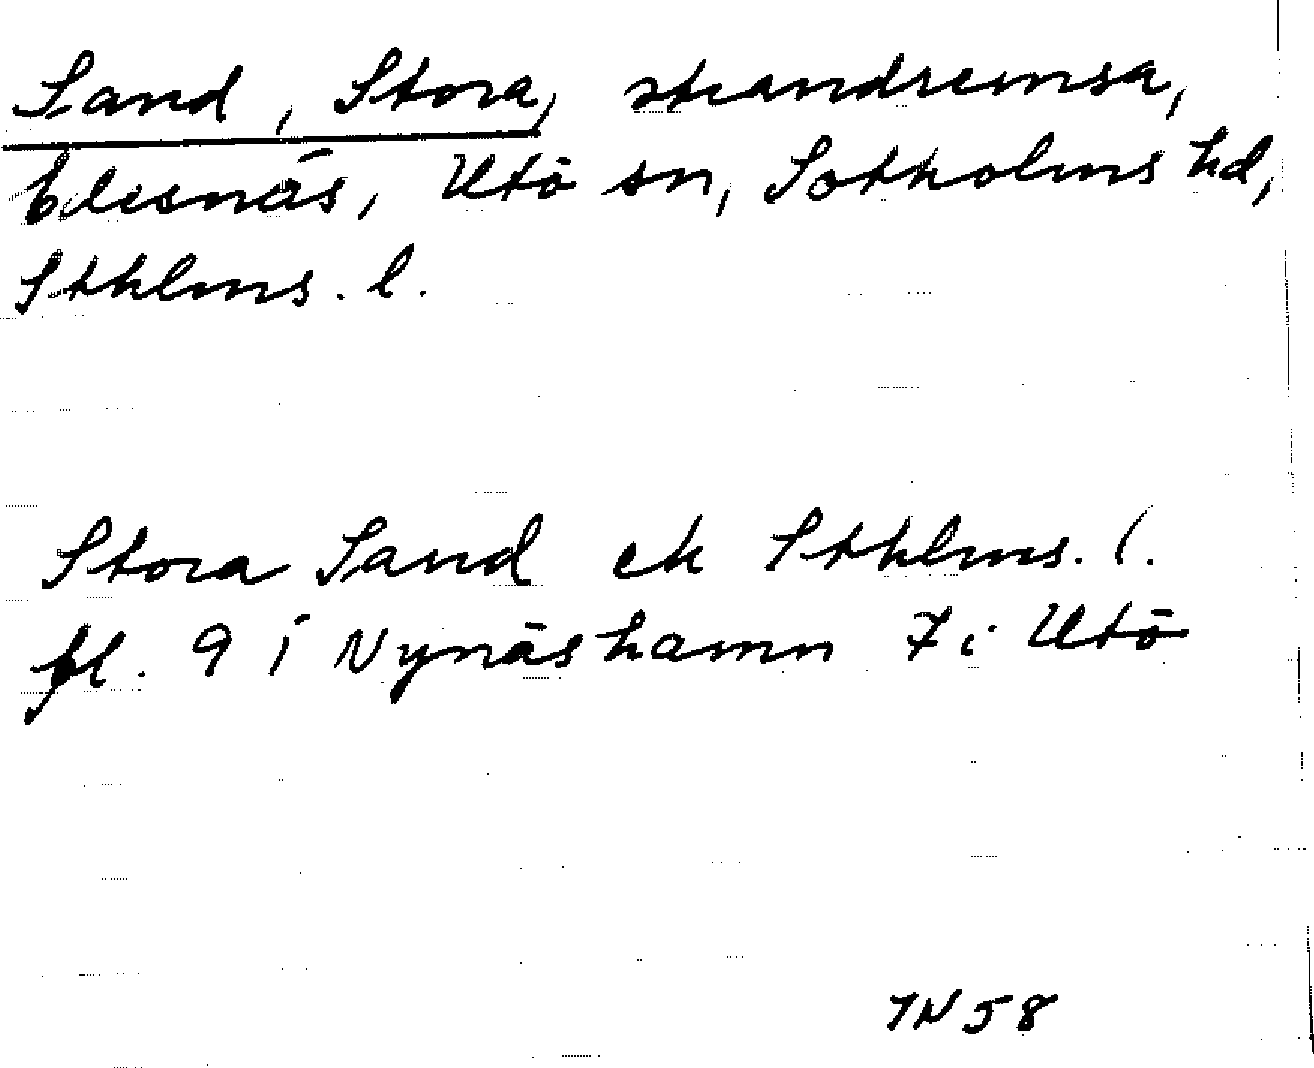 Sand, Stora, strandremsa,
Edesnäs, Utö sn, Sotholms hd,
Sthlms. l.
Stora Sand ek Sthlms. l.
fl. 9 i Nynäshamn 7 i Utö
IN 58